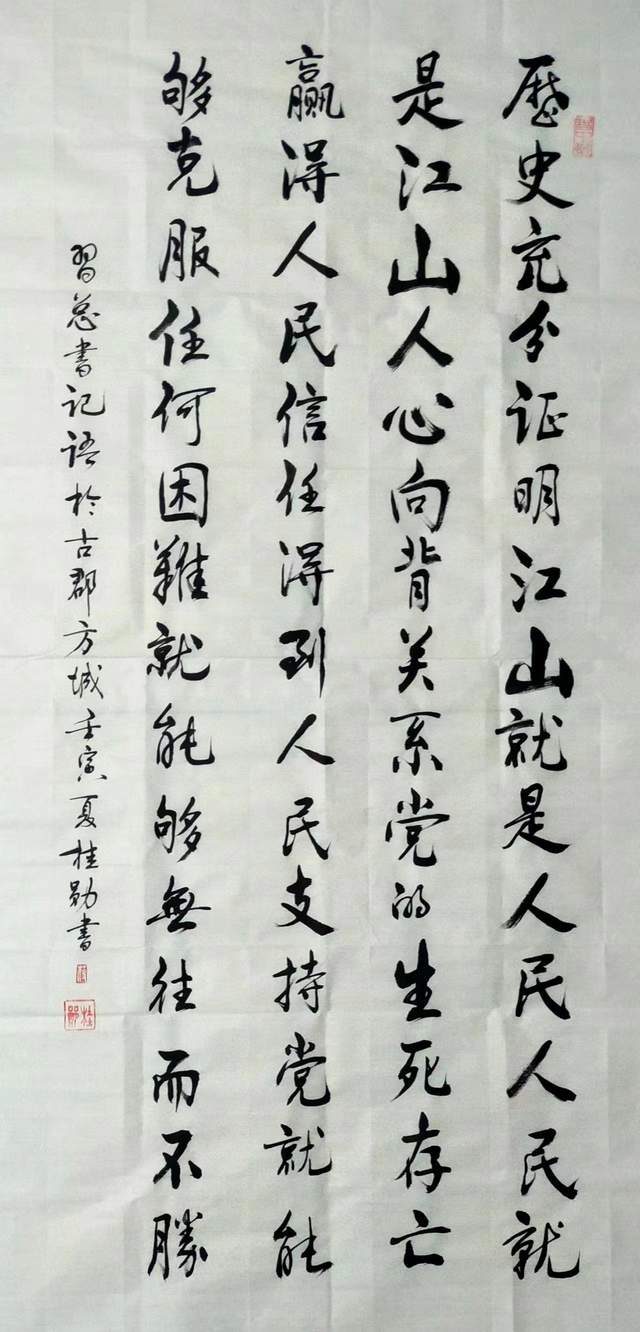 歷史充分证明江山就是人民人民就
是江山人心向背关系党的生死存亡
赢得人民信任得到人民支持党就能
够克服任何困難就能够無往而不勝
習总書记语於古郡方城壬寅夏桂勋書